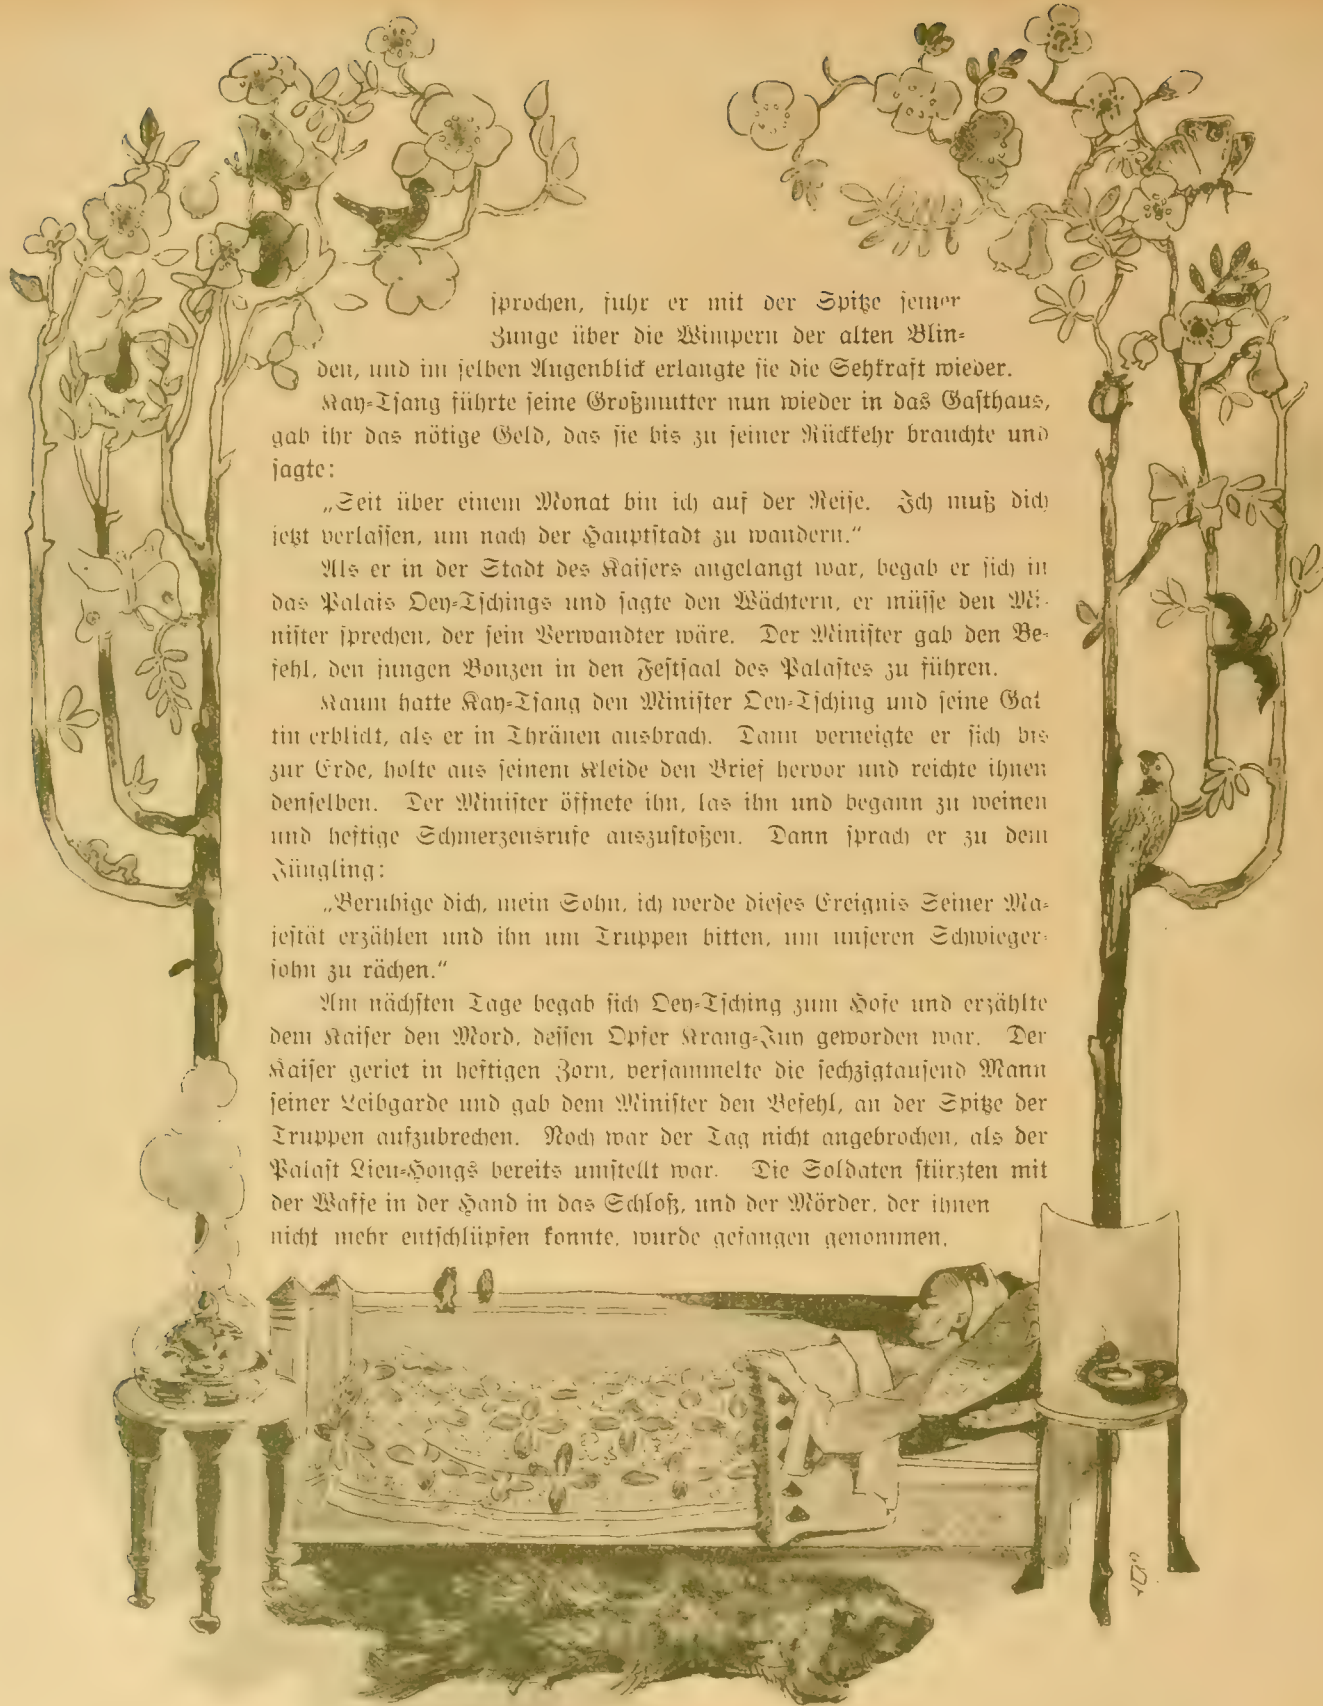 sprochen, fuhr er mit der Spitze seiner
Zunge über die Wimpern der alten Blin-
den, und im selben Augenblick erlangte sie die Sehkraft wieder.
Kay-Tsang führte seine Großmutter nun wieder in das Gasthaus,
gab ihr das nötige Geld, das sie bis zu seiner Rückkehr brauchte und
sagte:
„Seit über einem Monat bin ich auf der Reise. Ich muß dich
jetzt verlassen, um nach der Hauptstadt zu wandern.“
Als er in der Stadt des Kaisers angelangt war, begab er sich in
das Palais Oen-Tschings und sagte den Wächtern, er müsse den Mi-
nister sprechen, der sein Verwandter wäre. Der Minister gab den Be-
fehl, den jungen Bonzen in den Festsaal des Palastes zu führen.
Kaum hatte Kay-Tsang den Minister Oen-Tsching und seine Gat
tin erblickt, als er in Thränen ausbrach. Dann verneigte er sich bis
zur Erde, holte aus seinem Kleide den Brief hervor und reichte ihnen
denselben. Der Minister öffnete ihn, las ihn und begann zu weinen
und heftige Schmerzensrufe auszustoßen. Dann sprach er zu dem
Jüngling:
„Beruhige dich, mein Sohn, ich werde dieses Ereignis Seiner Ma-
jestät erzählen und ihn um Truppen bitten, um unseren Schwieger-
sohn zu rächen.“
Am nächsten Tage begab sich Oen-Tsching zum Hofe und erzählte
dem Kaiser den Mord, dessen Opfer Krang-Jun geworden war. Der
Kaiser geriet in heftigen Zorn, versammelte die sechzigtausend Mann
seiner Leibgarde und gab dem Minister den Befehl, an der Spitze der
Truppen aufzubrechen. Noch war der Tag nicht angebrochen, als der
Palast Lieu-Hongs bereits umstellt war. Die Soldaten stürzten mit
der Waffe in der Hand in das Schloß, und der Mörder, der ihnen
nicht mehr entschlüpfen konnte, wurde gefangen genommen,